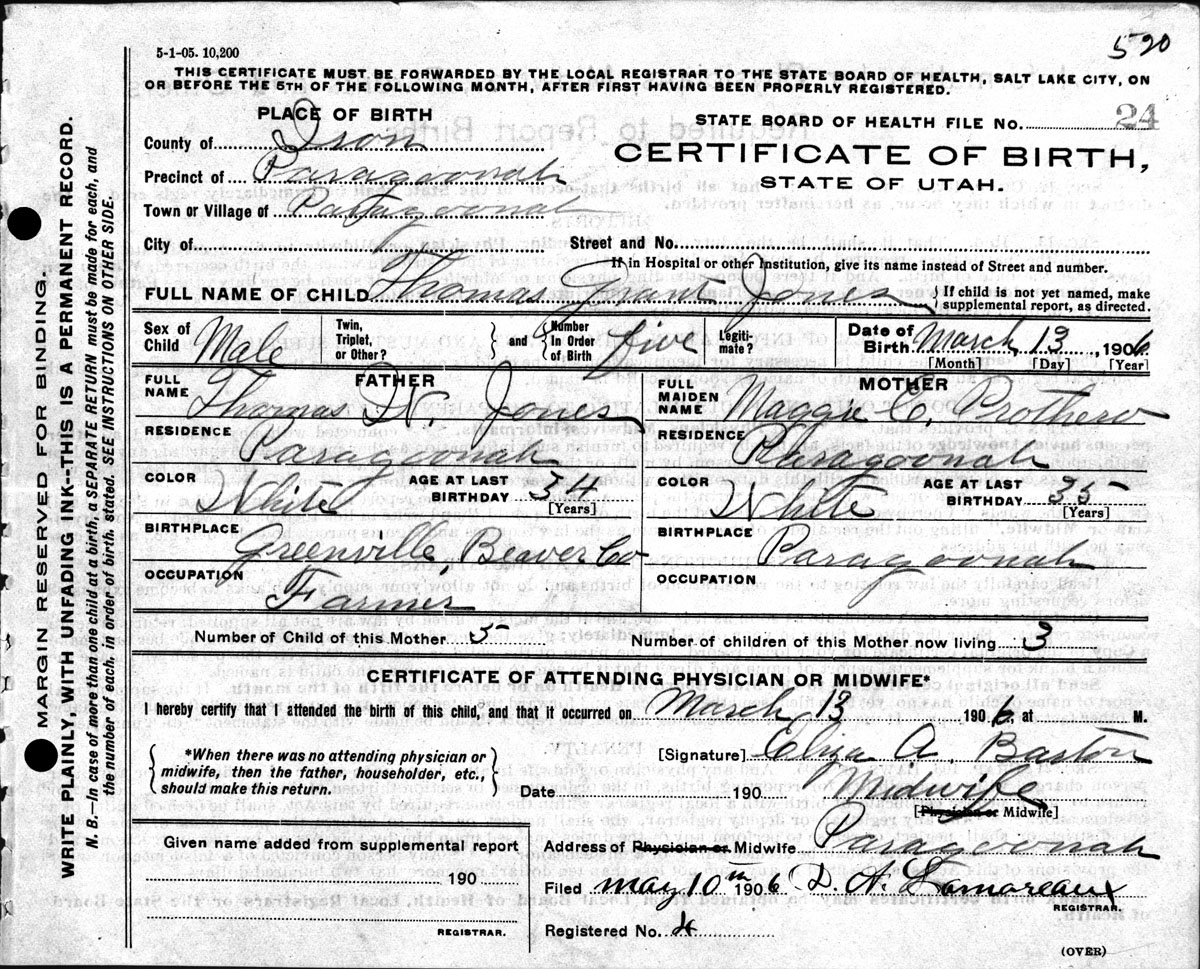 5-1-05. 10,200
520
THIS CERTIFICATE MUST BE FORWARDED BY THE LOCAL REGISTRAR TO THE STATE BOARD OF HEALTH, SALT LAKE CITY, ON
OR BEFORE THE 5TH OF THE FOLLOWING MONTH, AFTER FIRST HAVING BEEN PROPERLY REGISTERED.
PLACE OF BIRTH
STATE BOARD OF HEALTH FILE NO. 24
County of Iron
CERTIFICATE OF BIRTH,
STATE OF UTAH.
Precinct of Paragoonah
Town or Village of Paragoonah
City of Street and No.
If in Hospital or other Institution, give its name instead of Street and number.
FULL NAME OF CHILD Thomas Grant Jones } If child is not yet named, make supplemental report, as directed.
Sex of Child Male Twin, Triplet, or Other? } and { Number In Order of Birth five Legiti-mate? Date of Birth March, 13, 1906
[Month] [Day] [Year]
FATHER
FULL NAME Thomas W. Jones
RESIDENCE Paragoonah
COLOR White AGE AT LAST BIRTHDAY 34 [Years]
BIRTHPLACE Greenville, Beaver Co
OCCUPATION Farmer
MOTHER
FULL MAIDEN NAME Maggie E. Prothero
RESIDENCE Paragoonah
COLOR White AGE AT LAST BIRTHDAY 35 [Years]
BIRTHPLACE Paragoonah
OCCUPATION
Number of Child of this Mother 5 Number of children of this Mother now living 3
CERTIFICATE OF ATTENDING PHYSICIAN OR MIDWIFE*
I hereby certify that I attended the birth of this child, and that it occurred on March 13 1906, at M.
{ *When there was no attending physician or midwife, then the father, householder, etc., should make this return. }
[Signature] Eliza A. Barton
Date 190 Midwife
[Physician or Midwife]
Given name added from supplemental report
190
REGISTRAR.
Address of Physician or Midwife Paragoonah
Filed May 10th 1906 D. A. Lamoreaux
REGISTRAR.
Registered No. 4
(OVER)
MARGIN RESERVED FOR BINDING.
WRITE PLAINLY, WITH UNFADING INK--THIS IS A PERMANENT RECORD.
N. B.--In case of more than one child at a birth, a SEPARATE RETURN must be made for each, and
the number of each, in order of birth, stated. SEE INSTRUCTIONS ON OTHER SIDE.